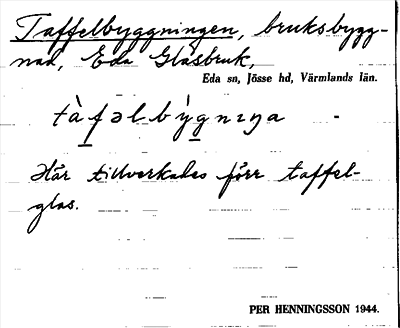 Taffelbyggningen, bruksbygg-
nad, Eda Glasbruk,
Eda sn, Jösse hd, Värmlands län.
tàfəlbỳgnıŋa -
Här tillverkades förr taffel-
glas.
PER HENNINGSSON 1944.